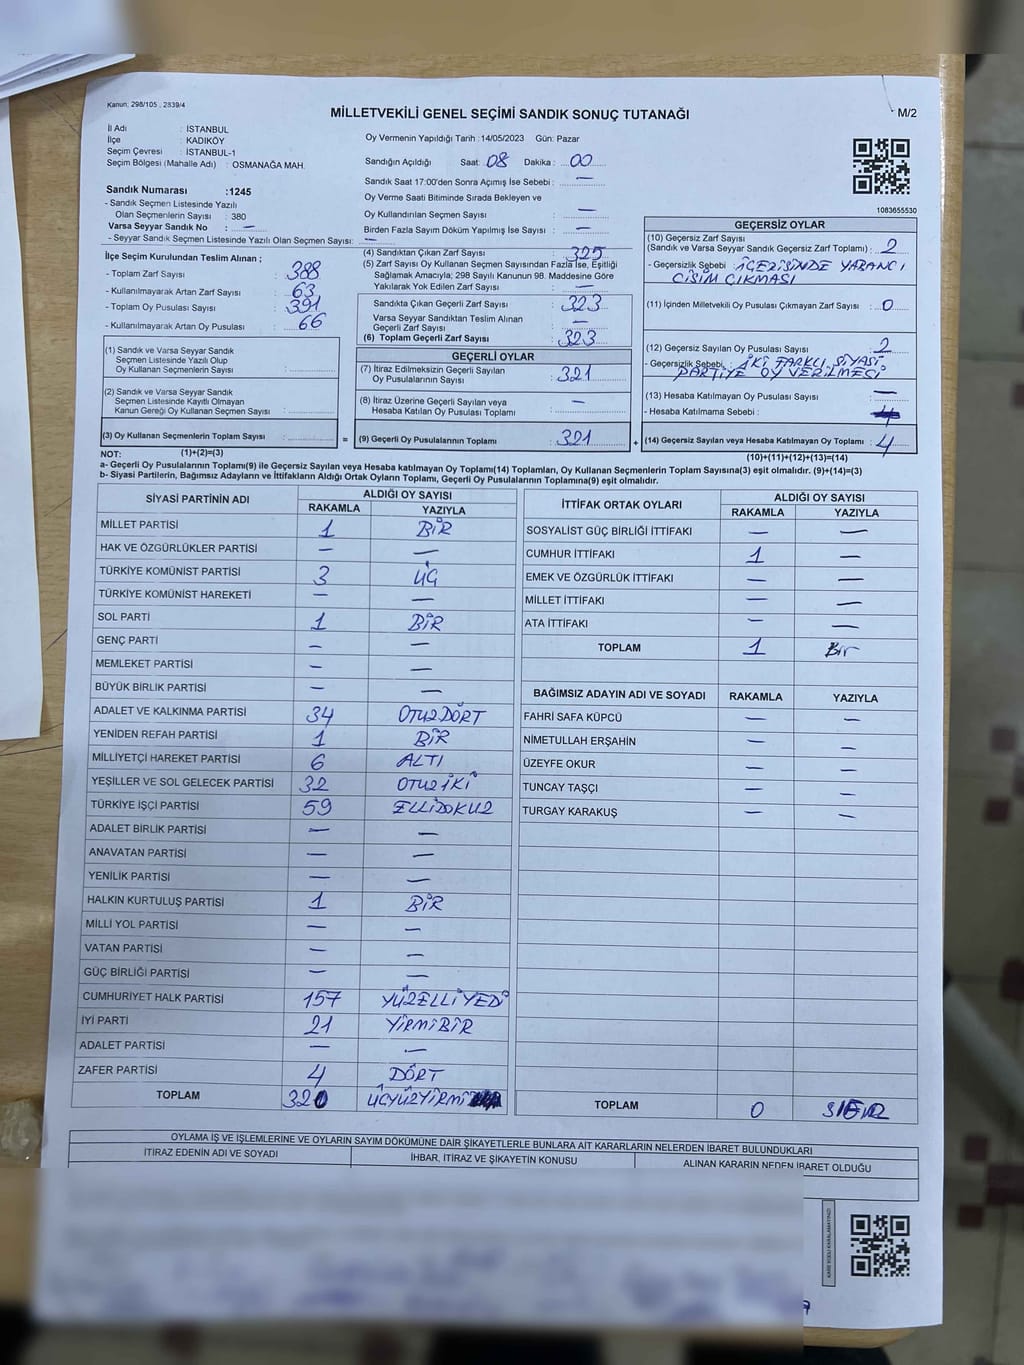 Kanun; 298/105 , 2839/4
MİLLETVEKİLİ GENEL SEÇİMİ SANDIK SONUÇ TUTANAĞI
M/2
İl Adı : İSTANBUL
İlçe : KADIKÖY
Seçim Çevresi : İSTANBUL-1
Seçim Bölgesi (Mahalle Adı) : OSMANAĞA MAH.
Oy Vermenin Yapıldığı Tarih : 14/05/2023 Gün: Pazar
Sandığın Açıldığı Saat: 08 Dakika : 00
Sandık Saat 17:00'den Sonra Açımış İse Sebebi : —
Oy Verme Saati Bitiminde Sırada Bekleyen ve
Oy Kullandırılan Seçmen Sayısı : —
Birden Fazla Sayım Döküm Yapılmış İse Sayısı : —
1083655530
Sandık Numarası :1245
- Sandık Seçmen Listesinde Yazılı
Olan Seçmenlerin Sayısı : 380
Varsa Seyyar Sandık No : —
- Seyyar Sandık Seçmen Listesinde Yazılı Olan Seçmen Sayısı: —
İlçe Seçim Kurulundan Teslim Alınan ;
- Toplam Zarf Sayısı : 388
- Kullanılmayarak Artan Zarf Sayısı : 63
- Toplam Oy Pusulası Sayısı : 391
- Kullanılmayarak Artan Oy Pusulası : 66
(1) Sandık ve Varsa Seyyar Sandık
Seçmen Listesinde Yazılı Olup
Oy Kullanan Seçmenlerin Sayısı :
(2) Sandık ve Varsa Seyyar Sandık
Seçmen Listesinde Kayıtlı Olmayan
Kanun Gereği Oy Kullanan Seçmen Sayısı :
(3) Oy Kullanan Seçmenlerin Toplam Sayısı :
(1)+(2)=(3)
(4) Sandıktan Çıkan Zarf Sayısı : 325
(5) Zarf Sayısı Oy Kullanan Seçmen Sayısından Fazla İse, Eşitliği
Sağlamak Amacıyla; 298 Sayılı Kanunun 98. Maddesine Göre
Yakılarak Yok Edilen Zarf Sayısı : —
Sandıkta Çıkan Geçerli Zarf Sayısı : 323
Varsa Seyyar Sandıktan Teslim Alınan
Geçerli Zarf Sayısı : —
(6) Toplam Geçerli Zarf Sayısı : 323
GEÇERLİ OYLAR
(7) İtiraz Edilmeksizin Geçerli Sayılan
Oy Pusulalarının Sayısı : 321
(8) İtiraz Üzerine Geçerli Sayılan veya
Hesaba Katılan Oy Pusulası Toplamı : —
= (9) Geçerli Oy Pusulalarının Toplamı : 321
GEÇERSİZ OYLAR
(10) Geçersiz Zarf Sayısı
(Sandık ve Varsa Seyyar Sandık Geçersiz Zarf Toplamı) : 2
- Geçersizlik Sebebi : İÇERİSİNDE YABANCI
CİSİM ÇIKMASI
(11) İçinden Milletvekili Oy Pusulası Çıkmayan Zarf Sayısı : 0
(12) Geçersiz Sayılan Oy Pusulası Sayısı : 2
- Geçersizlik Sebebi : İKİ FARKLI SİYASİ
PARTİYE OY VERİLMESİ
(13) Hesaba Katılmayan Oy Pusulası Sayısı : —
- Hesaba Katılmama Sebebi :
+ (14) Geçersiz Sayılan veya Hesaba Katılmayan Oy Toplamı : 4
(10)+(11)+(12)+(13)=(14)
NOT:
a- Geçerli Oy Pusulalarının Toplamı(9) ile Geçersiz Sayılan veya Hesaba katılmayan Oy Toplam(14) Toplamları, Oy Kullanan Seçmenlerin Toplam Sayısına(3) eşit olmalıdır. (9)+(14)=(3)
b- Siyasi Partilerin, Bağımsız Adayların ve İttifakların Aldığı Ortak Oyların Toplamı, Geçerli Oy Pusulalarının Toplamına(9) eşit olmalıdır.
SİYASİ PARTİNİN ADI ALDIĞI OY SAYISI
RAKAMLA YAZIYLA
MİLLET PARTİSİ 1 BİR
HAK VE ÖZGÜRLÜKLER PARTİSİ — —
TÜRKİYE KOMÜNİST PARTİSİ 3 ÜÇ
TÜRKİYE KOMÜNİST HAREKETİ — —
SOL PARTİ 1 BİR
GENÇ PARTİ — —
MEMLEKET PARTİSİ — —
BÜYÜK BİRLİK PARTİSİ — —
ADALET VE KALKINMA PARTİSİ 34 OTUZDÖRT
YENİDEN REFAH PARTİSİ 1 BİR
MİLLİYETÇİ HAREKET PARTİSİ 6 ALTI
YEŞİLLER VE SOL GELECEK PARTİSİ 32 OTUZİKİ
TÜRKİYE İŞÇİ PARTİSİ 59 ELLİDOKUZ
ADALET BİRLİK PARTİSİ — —
ANAVATAN PARTİSİ — —
YENİLİK PARTİSİ — —
HALKIN KURTULUŞ PARTİSİ 1 BİR
MİLLİ YOL PARTİSİ — —
VATAN PARTİSİ — —
GÜÇ BİRLİĞİ PARTİSİ — —
CUMHURİYET HALK PARTİSİ 157 YÜZELLİYEDİ
İYİ PARTİ 21 YİRMİBİR
ADALET PARTİSİ — —
ZAFER PARTİSİ 4 DÖRT
TOPLAM 320 ÜÇYÜZYİRMİ
İTTİFAK ORTAK OYLARI ALDIĞI OY SAYISI
RAKAMLA YAZIYLA
SOSYALİST GÜÇ BİRLİĞİ İTTİFAKI — —
CUMHUR İTTİFAKI 1 —
EMEK VE ÖZGÜRLÜK İTTİFAKI — —
MİLLET İTTİFAKI — —
ATA İTTİFAKI — —
TOPLAM 1 Bir
BAĞIMSIZ ADAYIN ADI VE SOYADI RAKAMLA YAZIYLA
FAHRİ SAFA KÜPCÜ — —
NİMETULLAH ERŞAHİN — —
ÜZEYFE OKUR — —
TUNCAY TAŞÇI — —
TURGAY KARAKUŞ — —
TOPLAM 0 SIFIR
OYLAMA İŞ VE İŞLEMLERİNE VE OYLARIN SAYIM DÖKÜMÜNE DAİR ŞİKAYETLERLE BUNLARA AİT KARARLARIN NELERDEN İBARET BULUNDUKLARI
İTİRAZ EDENİN ADI VE SOYADI İHBAR, İTİRAZ VE ŞİKAYETİN KONUSU ALINAN KARARIN NEDEN İBARET OLDUĞU
KARE KODU KARALAMAYINIZ!